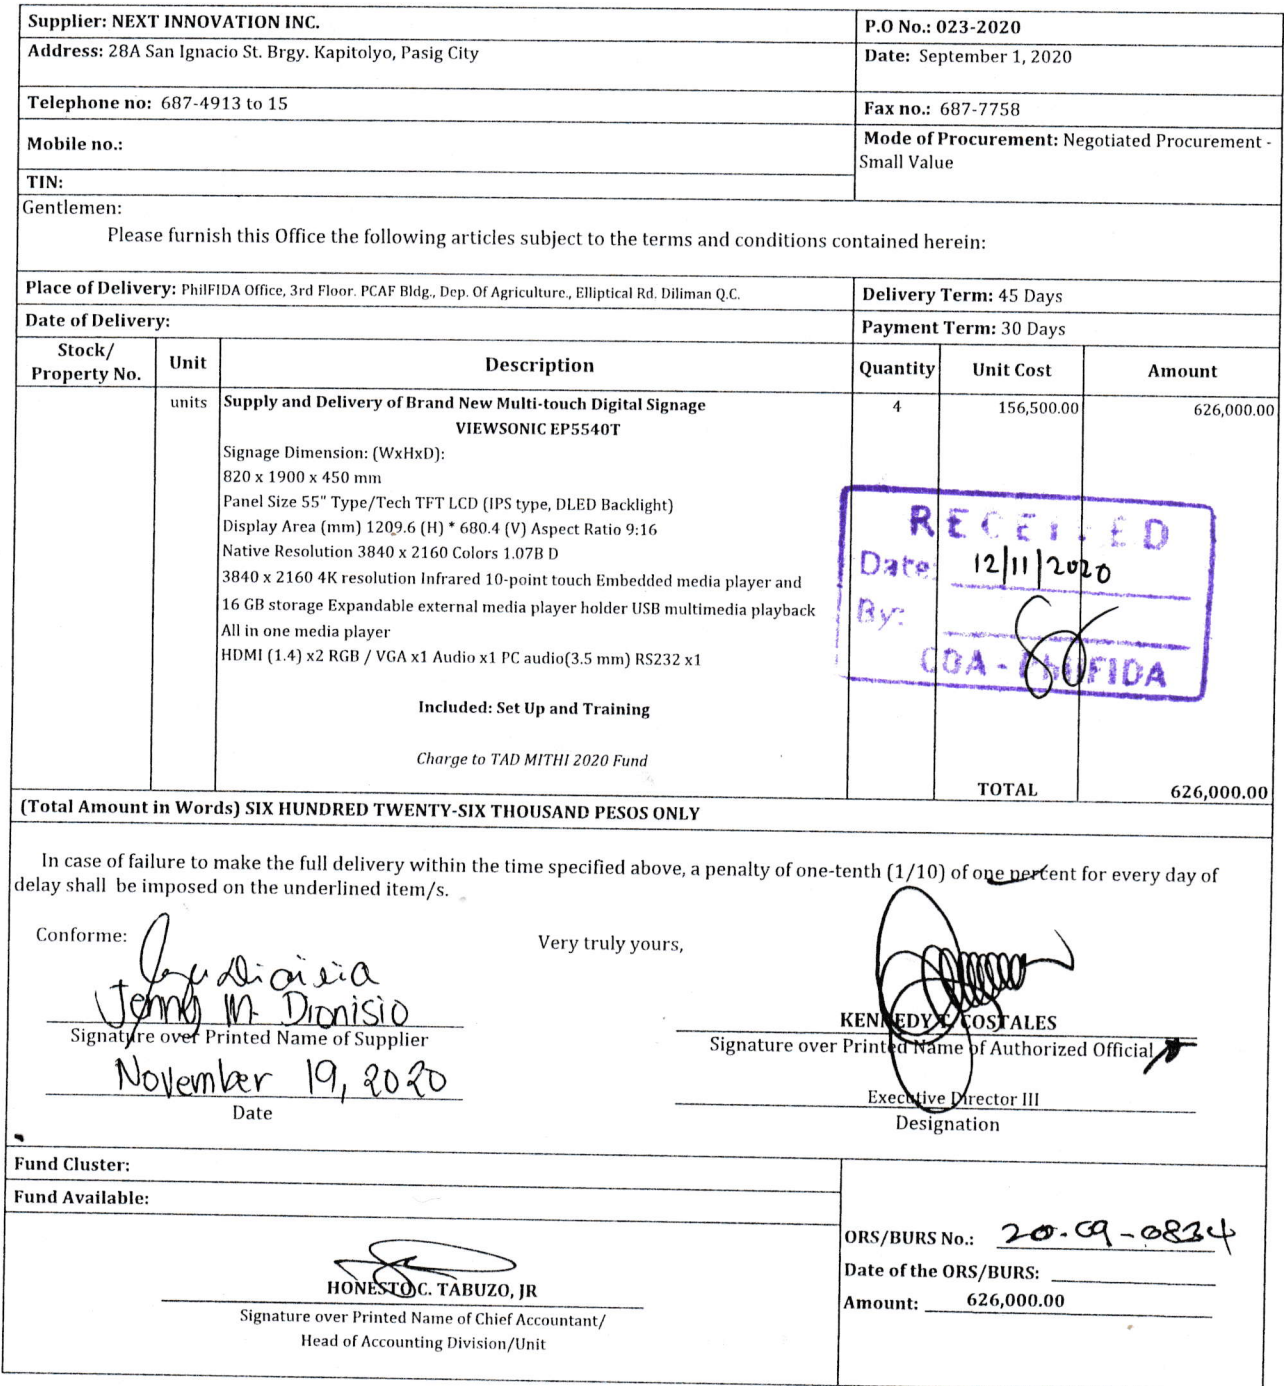 Supplier: NEXT INNOVATION INC.
P.O No.: 023-2020
Address: 28A San Ignacio St. Brgy. Kapitolyo, Pasig City
Date: September 1, 2020
Telephone no: 687-4913 to 15
Fax no.: 687-7758
Mobile no.:
Mode of Procurement: Negotiated Procurement -
Small Value
TIN:
Gentlemen:
Please furnish this Office the following articles subject to the terms and conditions contained herein:
Place of Delivery: PhilFIDA Office, 3rd Floor. PCAF Bldg., Dep. Of Agriculture., Elliptical Rd. Diliman Q.C.
Delivery Term: 45 Days
Date of Delivery:
Payment Term: 30 Days
Stock/
Property No.
Unit
Description
Quantity
Unit Cost
Amount
units
Supply and Delivery of Brand New Multi-touch Digital Signage
4
156,500.00
626,000.00
VIEWSONIC EP5540T
Signage Dimension: (WxHxD):
820 x 1900 x 450 mm
Panel Size 55" Type/Tech TFT LCD (IPS type, DLED Backlight)
Display Area (mm) 1209.6 (H) * 680.4 (V) Aspect Ratio 9:16
Native Resolution 3840 x 2160 Colors 1.07B D
3840 x 2160 4K resolution Infrared 10-point touch Embedded media player and
16 GB storage Expandable external media player holder USB multimedia playback
All in one media player
HDMI (1.4) x2 RGB / VGA x1 Audio x1 PC audio(3.5 mm) RS232 x1
RECEIVED
Date: 12/11/2020
By:
COA - PhilFIDA
Included: Set Up and Training
Charge to TAD MITHI 2020 Fund
TOTAL
626,000.00
(Total Amount in Words) SIX HUNDRED TWENTY-SIX THOUSAND PESOS ONLY
In case of failure to make the full delivery within the time specified above, a penalty of one-tenth (1/10) of one percent for every day of
delay shall be imposed on the underlined item/s.
Conforme:
Very truly yours,
Jenny M. Dionisio
Signature over Printed Name of Supplier
November 19, 2020
Date
KENNEDY T. COSTALES
Signature over Printed Name of Authorized Official
Executive Director III
Designation
Fund Cluster:
Fund Available:
HONESTO C. TABUZO, JR
Signature over Printed Name of Chief Accountant/
Head of Accounting Division/Unit
ORS/BURS No.: 20-09-0834
Date of the ORS/BURS:
Amount: 626,000.00